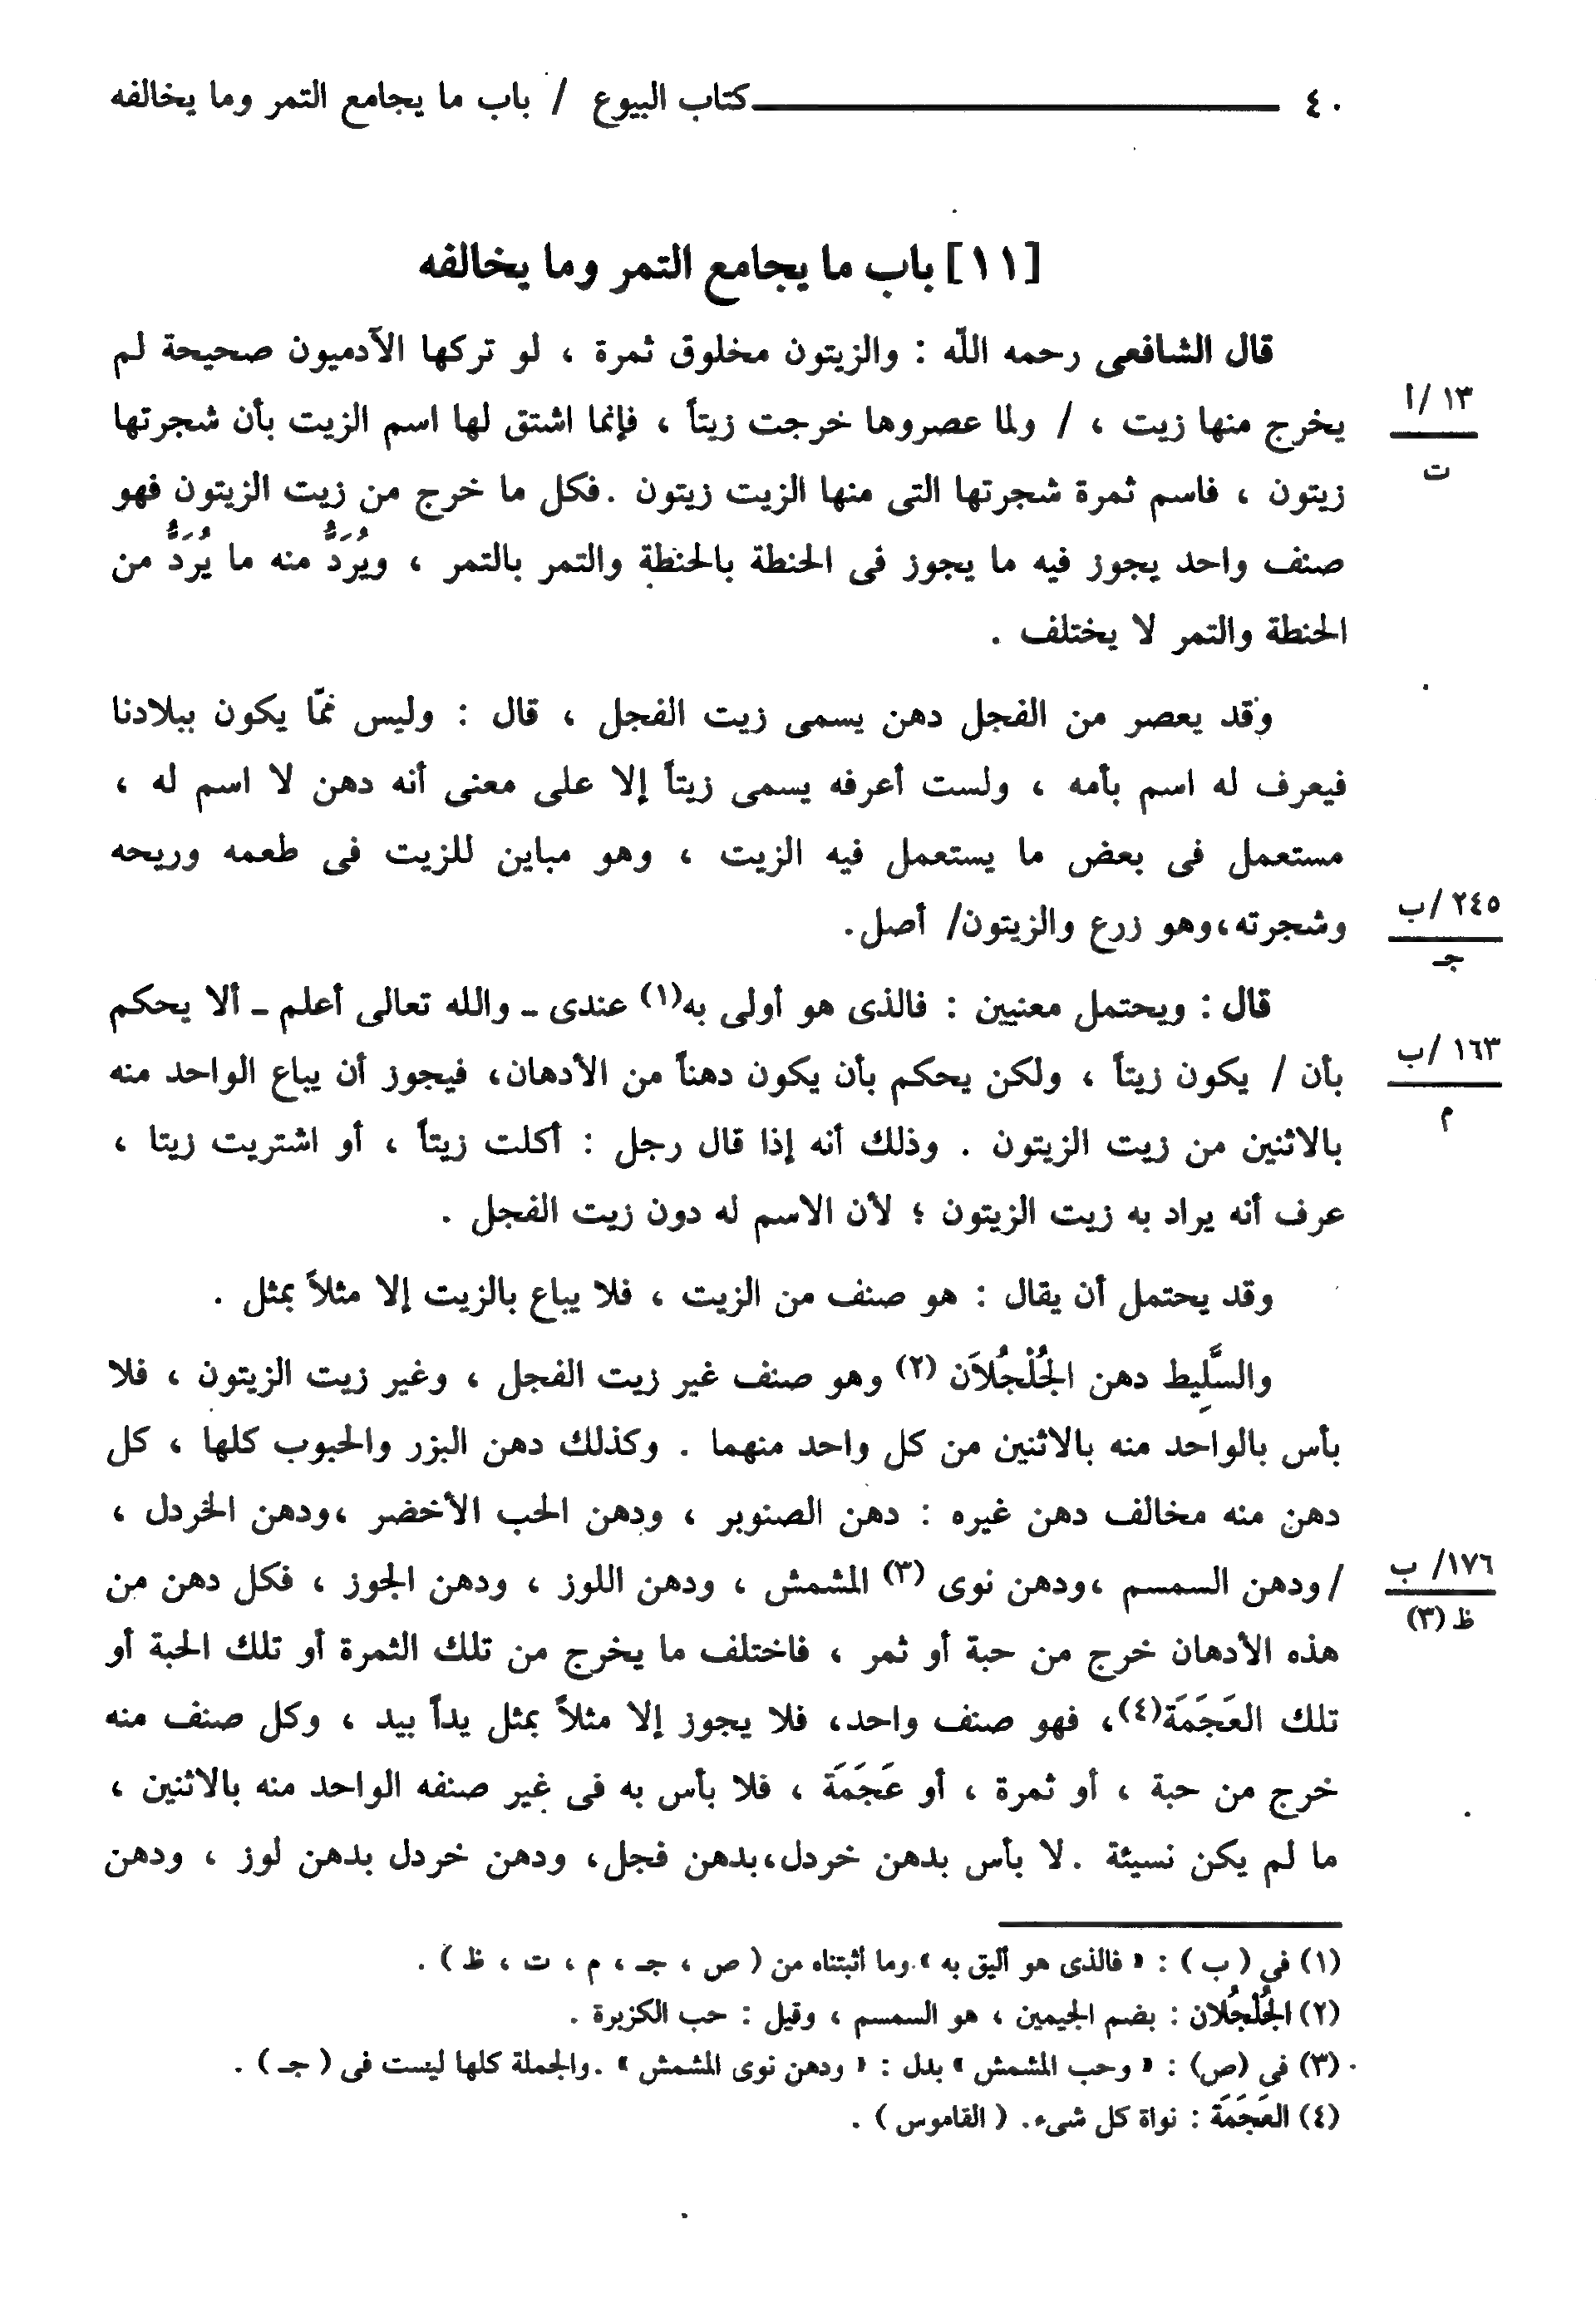 ٤٠ كتاب البيوع / باب ما يجامع التمر وما يخالفه
[١١] باب ما يجامع التمر وما يخالفه
قال الشافعى رحمه اللّه : والزيتون مخلوق ثمرة ، لو تركها الآدميون صحيحة لم
١٣/أ
يخرج منها زيت ، / ولما عصروها خرجت زيتاً ، فإنما اشتق لها اسم الزيت بأن شجرتها
ت
زيتون ، فاسم ثمرة شجرتها التى منها الزيت زيتون .فكل ما خرج من زيت الزيتون فهو
صنف واحد يجوز فيه ما يجوز فى الحنطة بالحنطة والتمر بالتمر ، ويُرَدُّ منه ما يُرَدُّ من
الحنطة والتمر لا يختلف .
وقد يعصر من الفجل دهن يسمى زيت الفجل ، قال : وليس ممّا يكون ببلادنا
فيعرف له اسم بأمه ، ولست أعرفه يسمى زيتاً إلا على معنى أنه دهن لا اسم له ،
مستعمل فى بعض ما يستعمل فيه الزيت ، وهو مباين للزيت فى طعمه وريحه
٢٤٥/ب
وشجرته،وهو زرع والزيتون/ أصل.
جـ
قال : ويحتمل معنيين : فالذى هو أولى به(١) عندى ـ والله تعالى أعلم ـ ألا يحكم
١٦٣/ب
بأن / يكون زيتاً ، ولكن يحكم بأن يكون دهناً من الأدهان، فيجوز أن يباع الواحد منه
م
بالاثنين من زيت الزيتون . وذلك أنه إذا قال رجل : أكلت زيتاً ، أو اشتريت زيتا ،
عرف أنه يراد به زيت الزيتون ؛ لأن الاسم له دون زيت الفجل .
وقد يحتمل أن يقال : هو صنف من الزيت ، فلا يباع بالزيت إلا مثلاً بمثل .
والسَّلِيط دهن الجُلْجُلاَن (٢) وهو صنف غير زيت الفجل ، وغير زيت الزيتون ، فلا
بأس بالواحد منه بالاثنين من كل واحد منهما . وكذلك دهن البزر والحبوب كلها ، كل
دهن منه مخالف دهن غيره : دهن الصنوبر ، ودهن الحب الأخضر ،ودهن الخردل ،
١٧٦/ ب
/ودهن السمسم ،ودهن نوى (٣) المشمش ، ودهن اللوز ، ودهن الجوز ، فكل دهن من
ظ (٣)
هذه الأدهان خرج من حبة أو ثمر ، فاختلف ما يخرج من تلك الثمرة أو تلك الحبة أو
تلك العَجَمَة(٤)، فهو صنف واحد، فلا يجوز إلا مثلاً بمثل يداً بيد ، وكل صنف منه
خرج من حبة ، أو ثمرة ، أو عَجَمَة ، فلا بأس به فى غير صنفه الواحد منه بالاثنين ،
ما لم يكن نسيئة .لا بأس بدهن خردل،بدهن فجل، ودهن خردل بدهن لوز ، ودهن
(١) في ( ب ) : « فالذى هو أليق به ».وما أثبتناه من ( ص ، جـ ، م ، ت ، ظ ) .
(٢) الجُلْجُلان : بضم الجيمين ، هو السمسم ، وقيل : حب الكزبرة .
(٣) في (ص) : « وحب المشمش » بدل : « ودهن نوى المشمش » .والجملة كلها ليست فى ( جـ ) .
(٤) العَجَمَة : نواة كل شىء. ( القاموس ) .